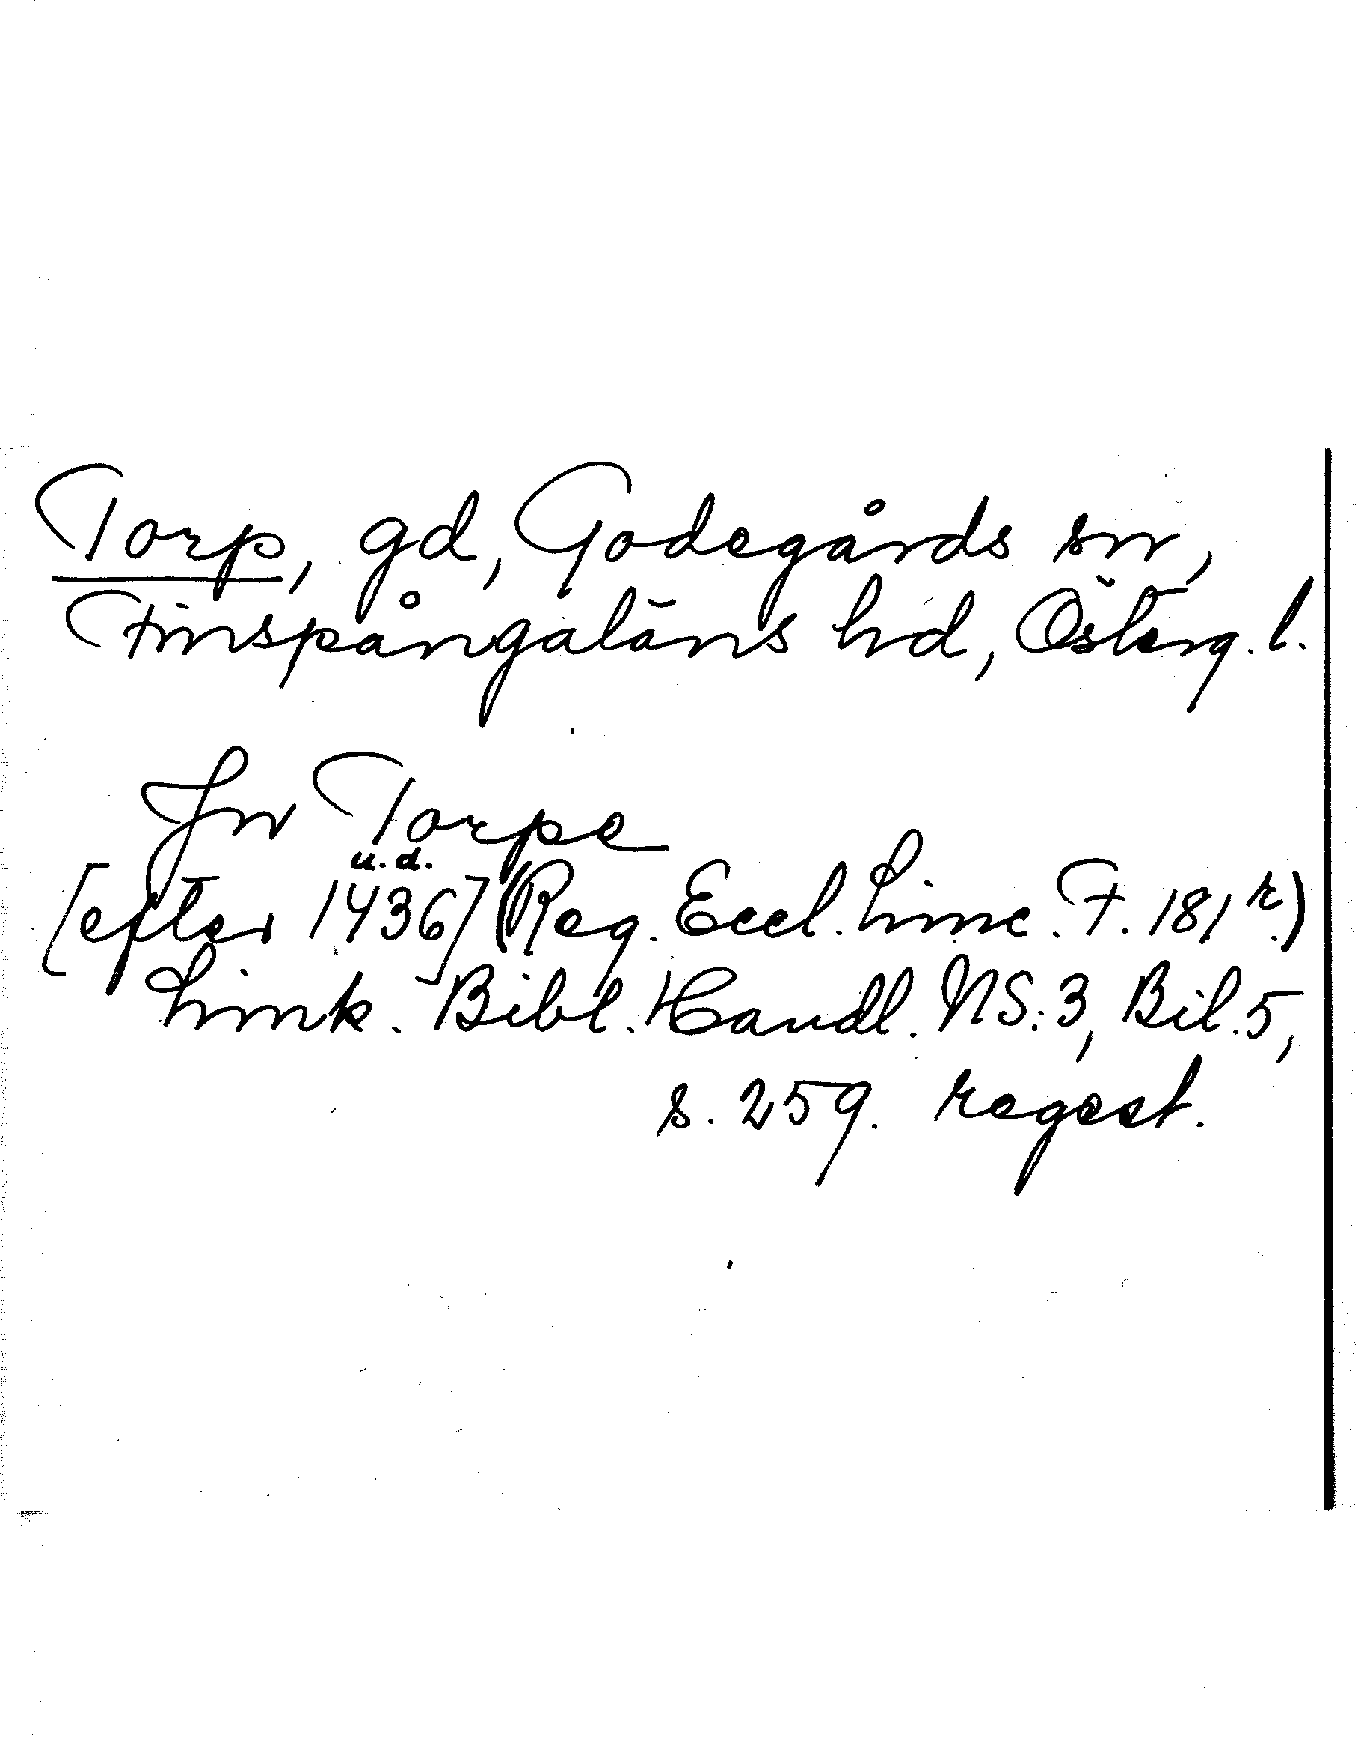 Torp, gd, Godegårds sn,
Finspångaläns hd, Österg. l.
Jn Torpe
u. d.
[efter 1436] (Reg. Eccl. Linc. F. 181 r.)
Link. Bibl. Handl. NS: 3, Bil. 5,
s. 259. regest.